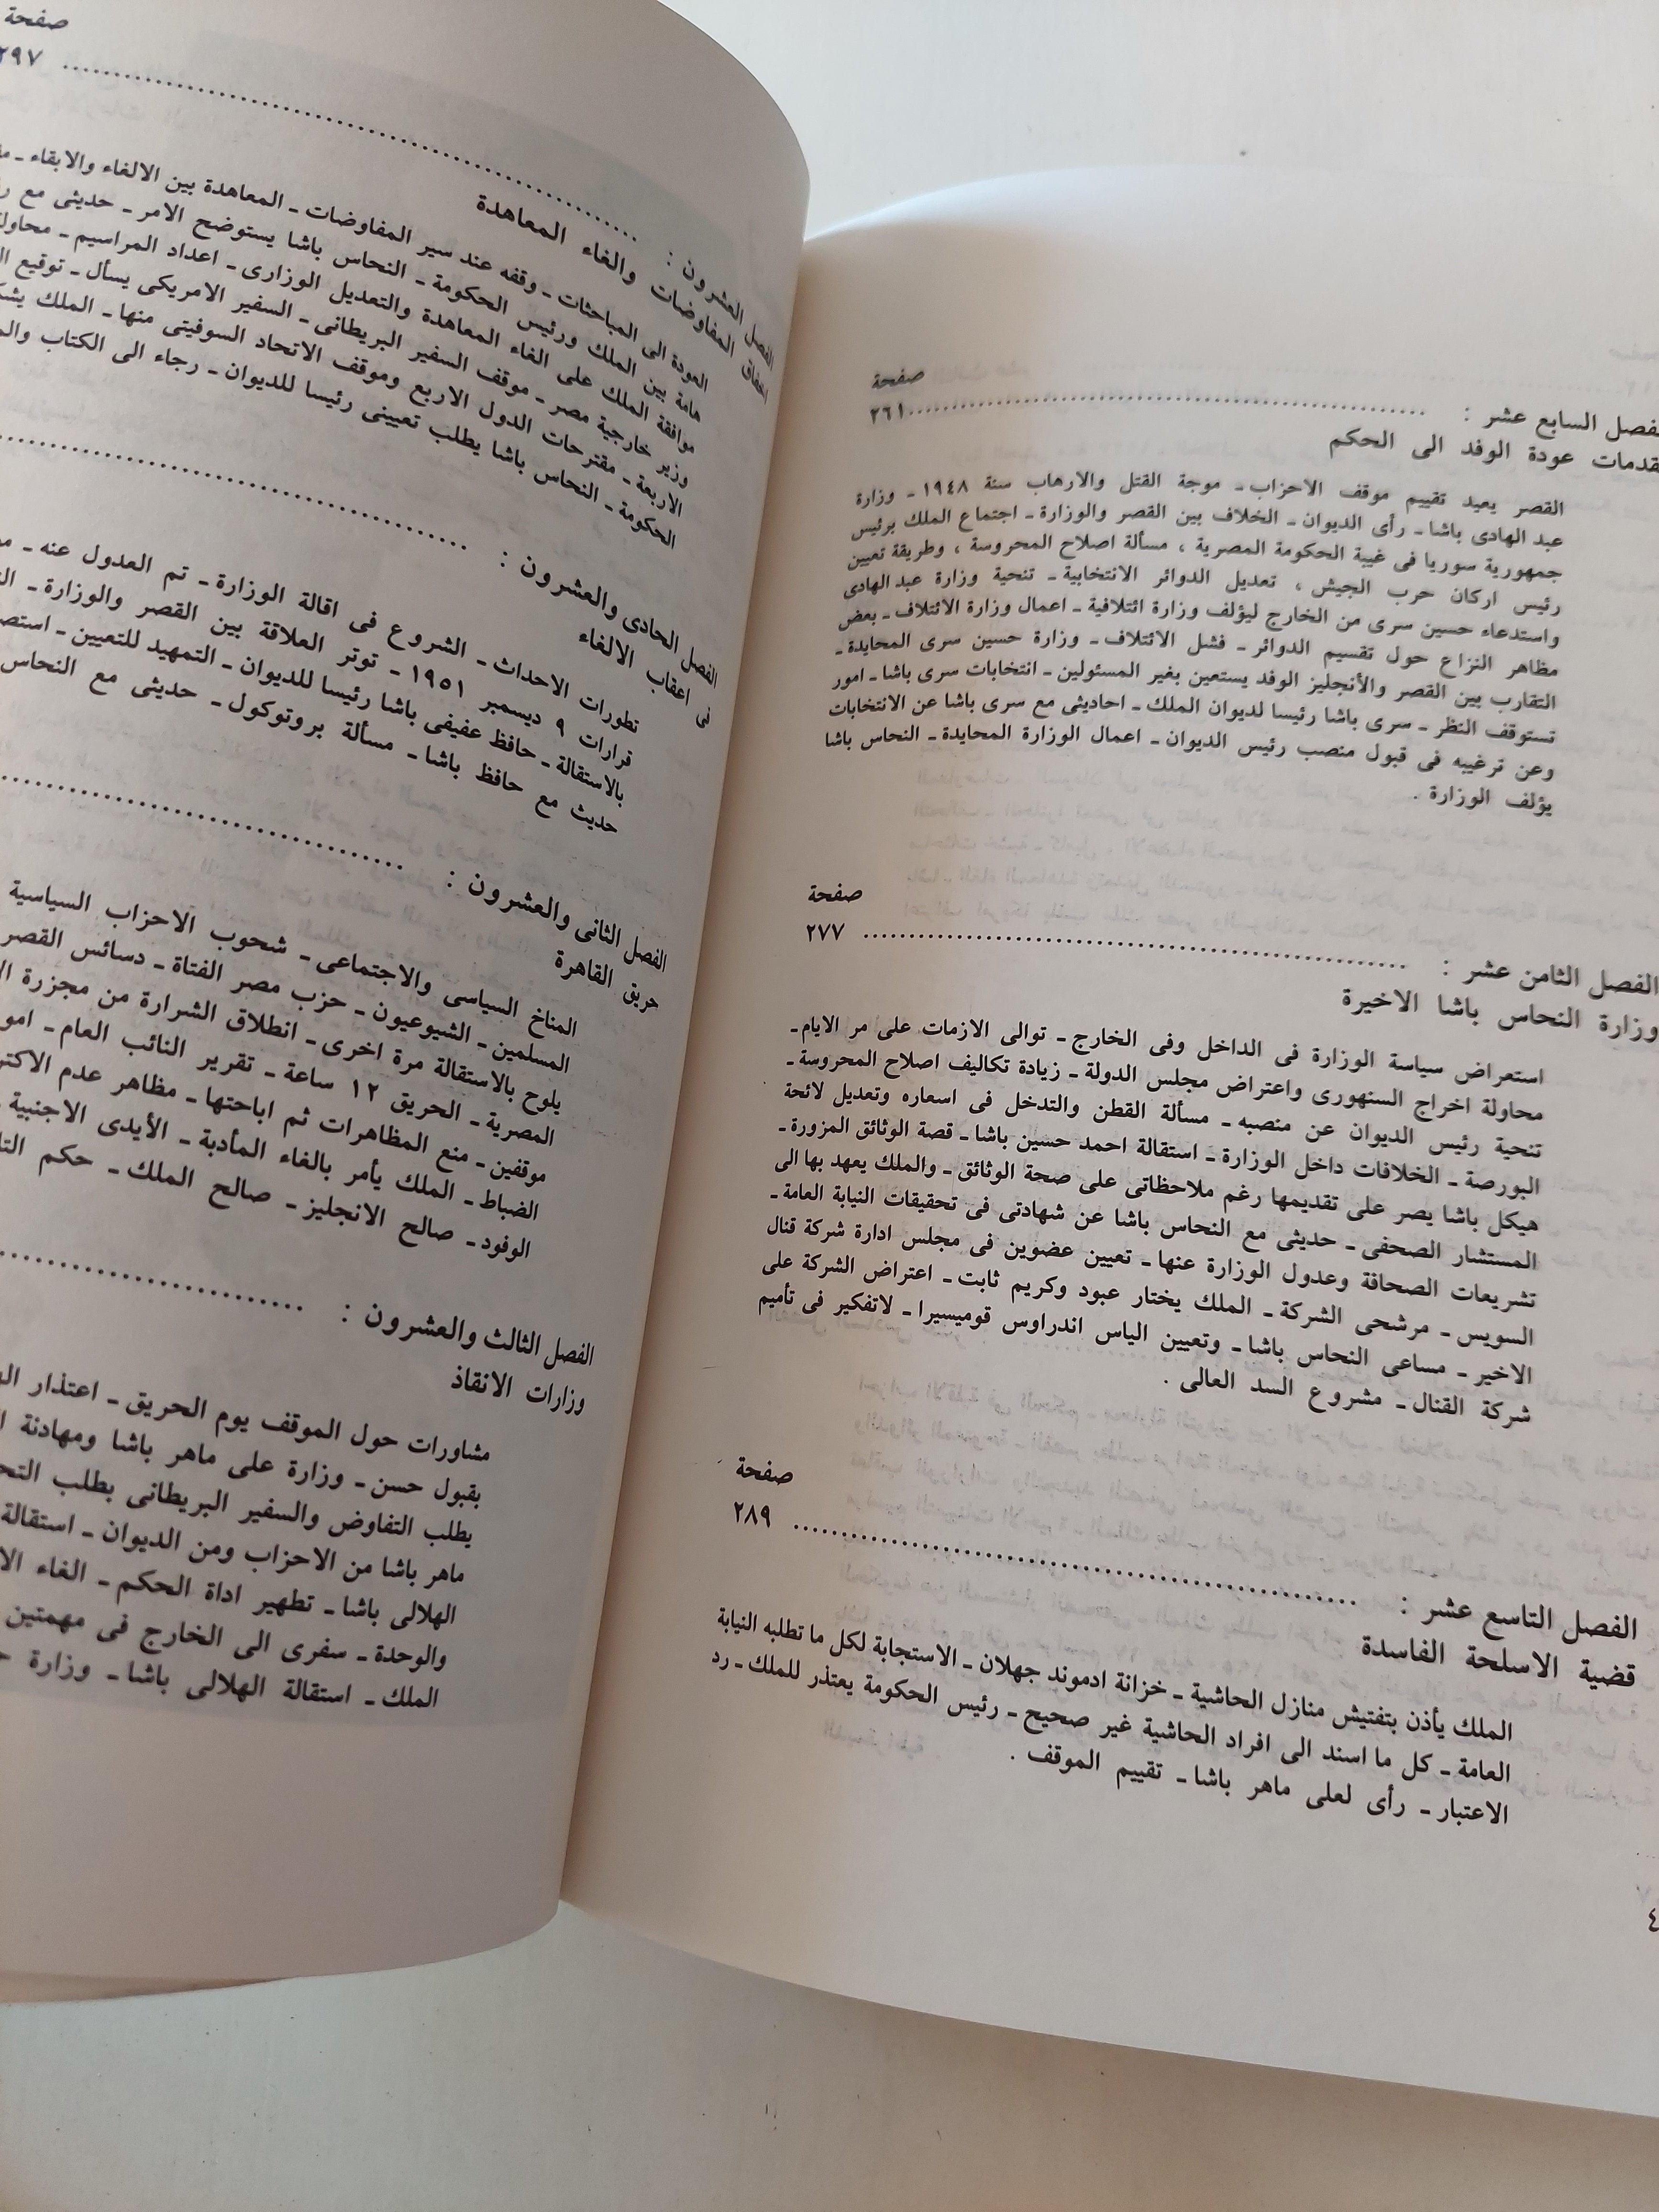 صفحة
الفصل السابع عشر : ........ ٢٦١
مقدمات عودة الوفد الى الحكم
القصر يعيد تقييم موقف الاحزاب ـ موجة القتل والارهاب سنة ١٩٤٨ ـ وزارة
عبد الهادى باشا ـ رأى الديوان ـ الخلاف بين القصر والوزارة ـ اجتماع الملك برئيس
جمهورية سوريا فى غيبة الحكومة المصرية ، مسألة اصلاح المحروسة ، وطريقة تعيين
رئيس اركان حرب الجيش ، تعديل الدوائر الانتخابية ـ تنحية وزارة عبد الهادى
واستدعاء حسين سرى من الخارج ليؤلف وزارة ائتلافية ـ اعمال وزارة الائتلاف ـ بعض
مظاهر النزاع حول تقسيم الدوائر ـ فشل الائتلاف ـ وزارة حسين سرى المحايدة ـ
التقارب بين القصر والأنجليز الوفد يستعين بغير المسئولين ـ انتخابات سرى باشا ـ امور
تستوقف النظر ـ سرى باشا رئيسا لديوان الملك ـ احاديثى مع سرى باشا عن الانتخابات
وعن ترغيبه فى قبول منصب رئيس الديوان ـ اعمال الوزارة المحايدة ـ النحاس باشا
يؤلف الوزارة .
صفحة
الفصل الثامن عشر : ........ ٢٧٧
وزارة النحاس باشا الاخيرة
استعراض سياسة الوزارة فى الداخل وفى الخارج ـ توالى الازمات على مر الايام ـ
محاولة اخراج السنهورى واعتراض مجلس الدولة ـ زيادة تكاليف اصلاح المحروسة ـ
تنحية رئيس الديوان عن منصبه ـ مسألة القطن والتدخل فى اسعاره وتعديل لائحة
البورصة ـ الخلافات داخل الوزارة ـ استقالة احمد حسين باشا ـ قصة الوثائق المزورة ـ
هيكل باشا يصر على تقديمها رغم ملاحظاتى على صحة الوثائق ـ والملك يعهد بها الى
المستشار الصحفى ـ حديثى مع النحاس باشا عن شهادتى فى تحقيقات النيابة العامة ـ
تشريعات الصحافة وعدول الوزارة عنها ـ تعيين عضوين فى مجلس ادارة شركة قنال
السويس ـ مرشحى الشركة ـ الملك يختار عبود وكريم ثابت ـ اعتراض الشركة على
الاخير ـ مساعى النحاس باشا ـ وتعيين الياس اندراوس قوميسيرا ـ لاتفكير فى تأميم
شركة القنال ـ مشروع السد العالى .
صفحة
الفصل التاسع عشر : ........ ٢٨٩
قضية الاسلحة الفاسدة
الملك يأذن بتفتيش منازل الحاشية ـ خزانة ادموند جهلان ـ الاستجابة لكل ما تطلبه النيابة
العامة ـ كل ما اسند الى افراد الحاشية غير صحيح ـ رئيس الحكومة يعتذر للملك ـ رد
الاعتبار ـ رأى لعلى ماهر باشا ـ تقييم الموقف .
صفحة
الفصل العشرون : ........ ٢٩٧
اخفاق المفاوضات والغاء المعاهدة
العودة الى المباحثات ـ وقفه عند سير المفاوضات ـ المعاهدة بين الالغاء والابقاء ـ
هامة بين الملك ورئيس الحكومة ـ النحاس باشا يستوضح الامر ـ حديثى مع
موافقة الملك على الغاء المعاهدة والتعديل الوزارى ـ اعداد المراسيم ـ
وزير خارجية مصر ـ موقف السفير البريطانى ـ السفير الامريكى يسأل ـ توقيع
الاربعة ـ مقترحات الدول الاربع وموقف الاتحاد السوفيتى منها ـ الملك
الحكومة ـ النحاس باشا يطلب تعيينى رئيسا للديوان ـ رجاء الى الكتاب
الفصل الحادى والعشرون : ........
فى اعقاب الالغاء
تطورات الاحداث ـ الشروع فى اقالة الوزارة ـ تم العدول عنه ـ
قرارات ٩ ديسمبر ١٩٥١ ـ توتر العلاقة بين القصر والوزارة ـ
بالاستقالة ـ حافظ عفيفى باشا رئيسا للديوان ـ التمهيد للتعيين ـ
حديث مع حافظ باشا ـ مسألة بروتوكول ـ حديثى مع النحاس
الفصل الثانى والعشرون : ........
حريق القاهرة
المناخ السياسى والاجتماعى ـ شحوب الاحزاب السياسية
المسلمين ـ الشيوعيون ـ حزب مصر الفتاة ـ دسائس القصر
يلوح بالاستقالة مرة اخرى ـ انطلاق الشرارة من مجزرة
المصرية ـ الحريق ١٢ ساعة ـ تقرير النائب العام ـ
موقفين ـ منع المظاهرات ثم اباحتها ـ مظاهر عدم
الضباط ـ الملك يأمر بالغاء المأدبة ـ الأيدى الاجنبية
الوفود ـ صالح الانجليز ـ صالح الملك ـ حكم
الفصل الثالث والعشرون : ........
وزارات الانقاذ
مشاورات حول الموقف يوم الحريق ـ اعتذار
بقبول حسن ـ وزارة على ماهر باشا ومهادنة
يطلب التفاوض والسفير البريطانى يطلب
ماهر باشا من الاحزاب ومن الديوان ـ استقالة
الهلالى باشا ـ تطهير اداة الحكم ـ الغاء
والوحدة ـ سفرى الى الخارج فى مهمتين
الملك ـ استقالة الهلالى باشا ـ وزارة